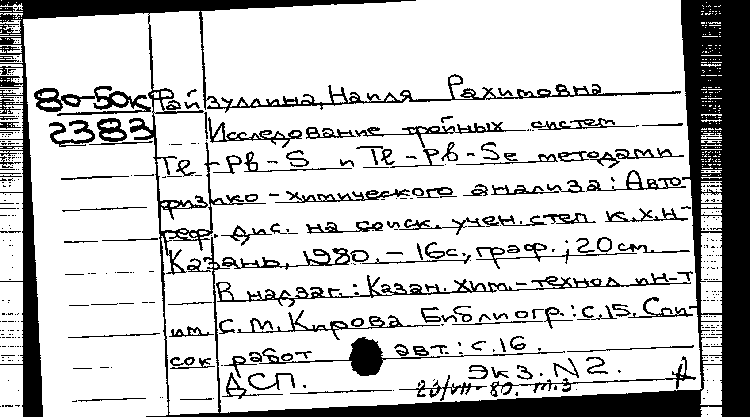 80-50к Файзуллина, Наиля Рахимовна
2383 Исследование тройных систем
Tl-Pb-S и Tl-Pb-Se методами
физико-химического анализа: Авто-
реф. дис. на соиск. учен. степ к.х.н-
Казань, 1980. - 16с., граф.; 20см.
В надзаг.: Казан. хим.-технол ин-т
им. С.М. Кирова Библиогр.: с.15. Спи-
сок работ авт.: с.16.
ДСП. Экз. N2.
23/VII-80. т.3